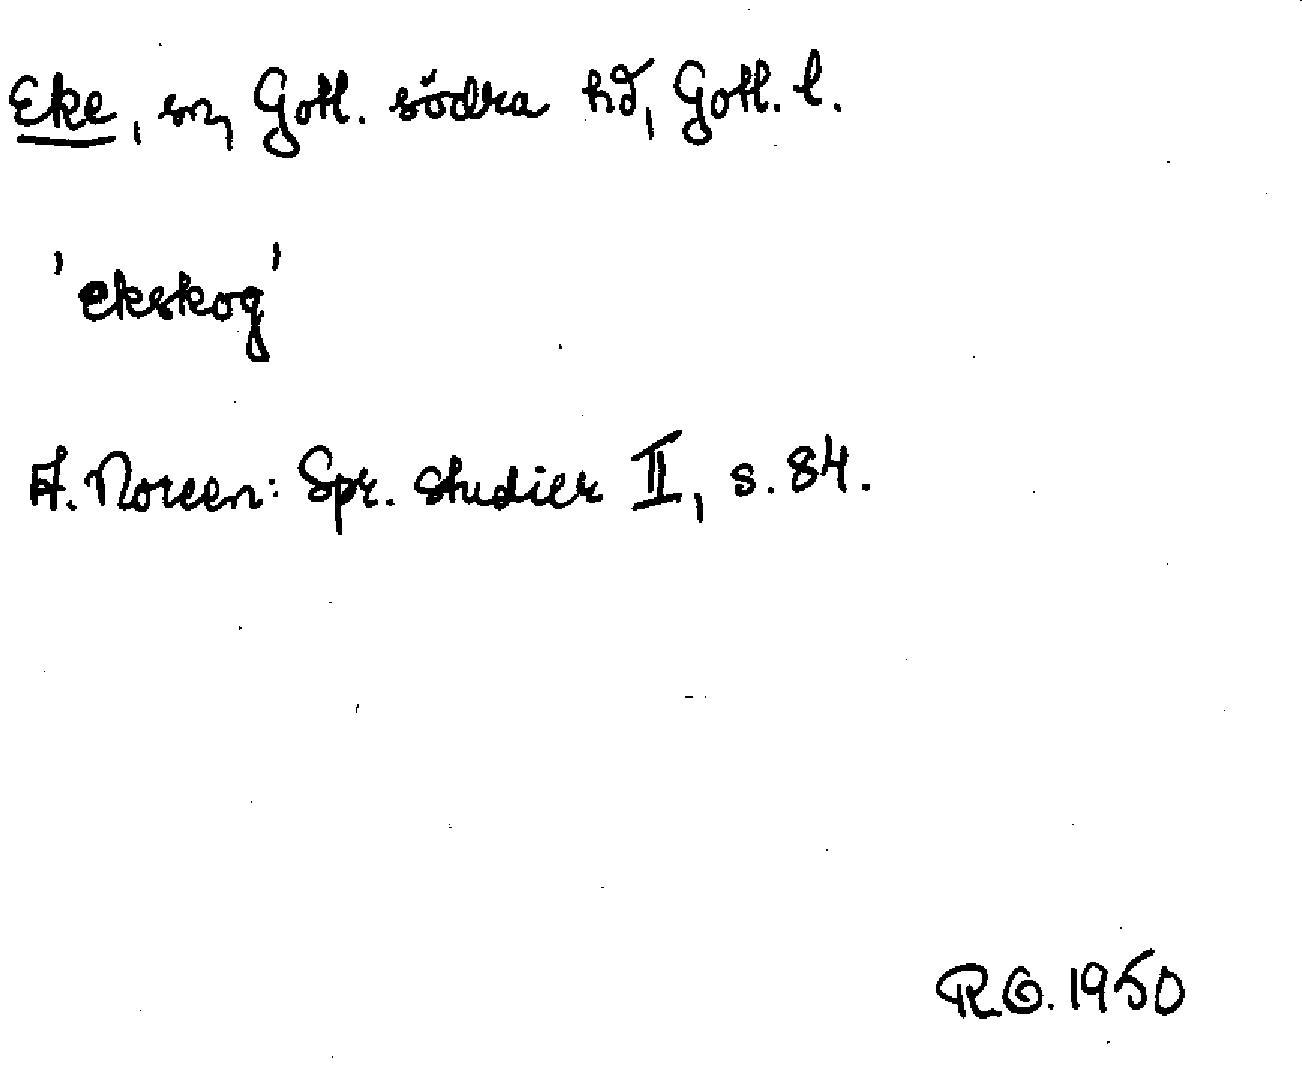 Eke, sn, Gotl. södra hd, Gotl. l.
'ekskog'
A. Noreen: Spr. studier II, s. 84.
R.G. 1950